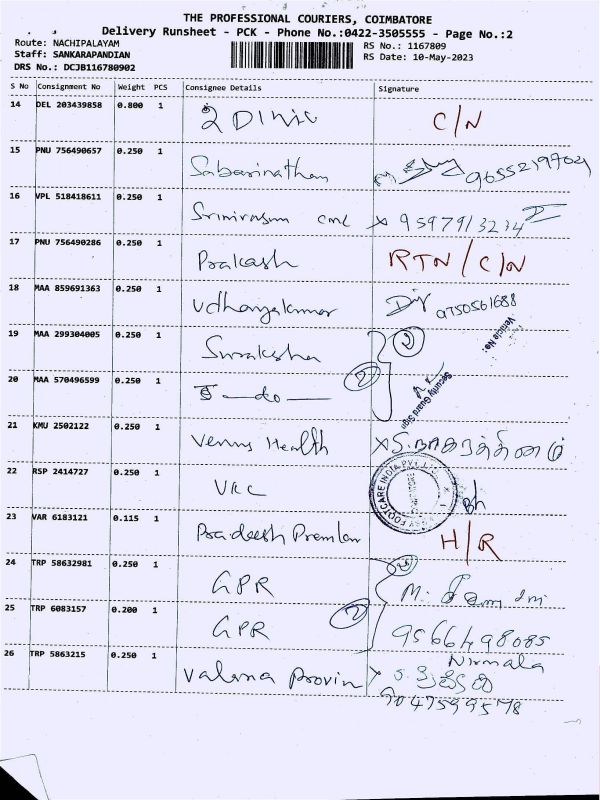 THE PROFESSIONAL COURIERS, COIMBATORE
Delivery Runsheet - PCK - Phone No.:0422-3505555 - Page No.:2
Route: NACHIPALAYAM RS No.: 1167809
Staff: SANKARAPANDIAN RS Date: 10-May-2023
DRS No.: DCJB116780902
S No Consignment No Weight PCS Consignee Details Signature
14 DEL 203439858 0.800 1 C/N
15 PNU 756490657 0.250 1 Sabarinathan 9655219704
16 VPL 518418611 0.250 1 X 9597913234
17 PNU 756490286 0.250 1 Prakash RTN/C/N
18 MAA 859691363 0.250 1 Udhayakumar 9750561688
Vehicle No:
19 MAA 299304005 0.250 1 Suraksha 2
20 MAA 570496599 0.250 1 — do — 2
Security Guard Sign
21 KMU 2502122 0.250 1 Venus Health X S. நாகரத்தினம்
22 RSP 2414727 0.250 1 VRC
23 VAR 6183121 0.115 1 Pradeesh Premlan H/R
24 TRP 58632981 0.250 1 GPR M.
25 TRP 6083157 0.200 1 GPR 2 9566498085
Nirmala
26 TRP 5863215 0.250 1 Valena Provin X
9047599578